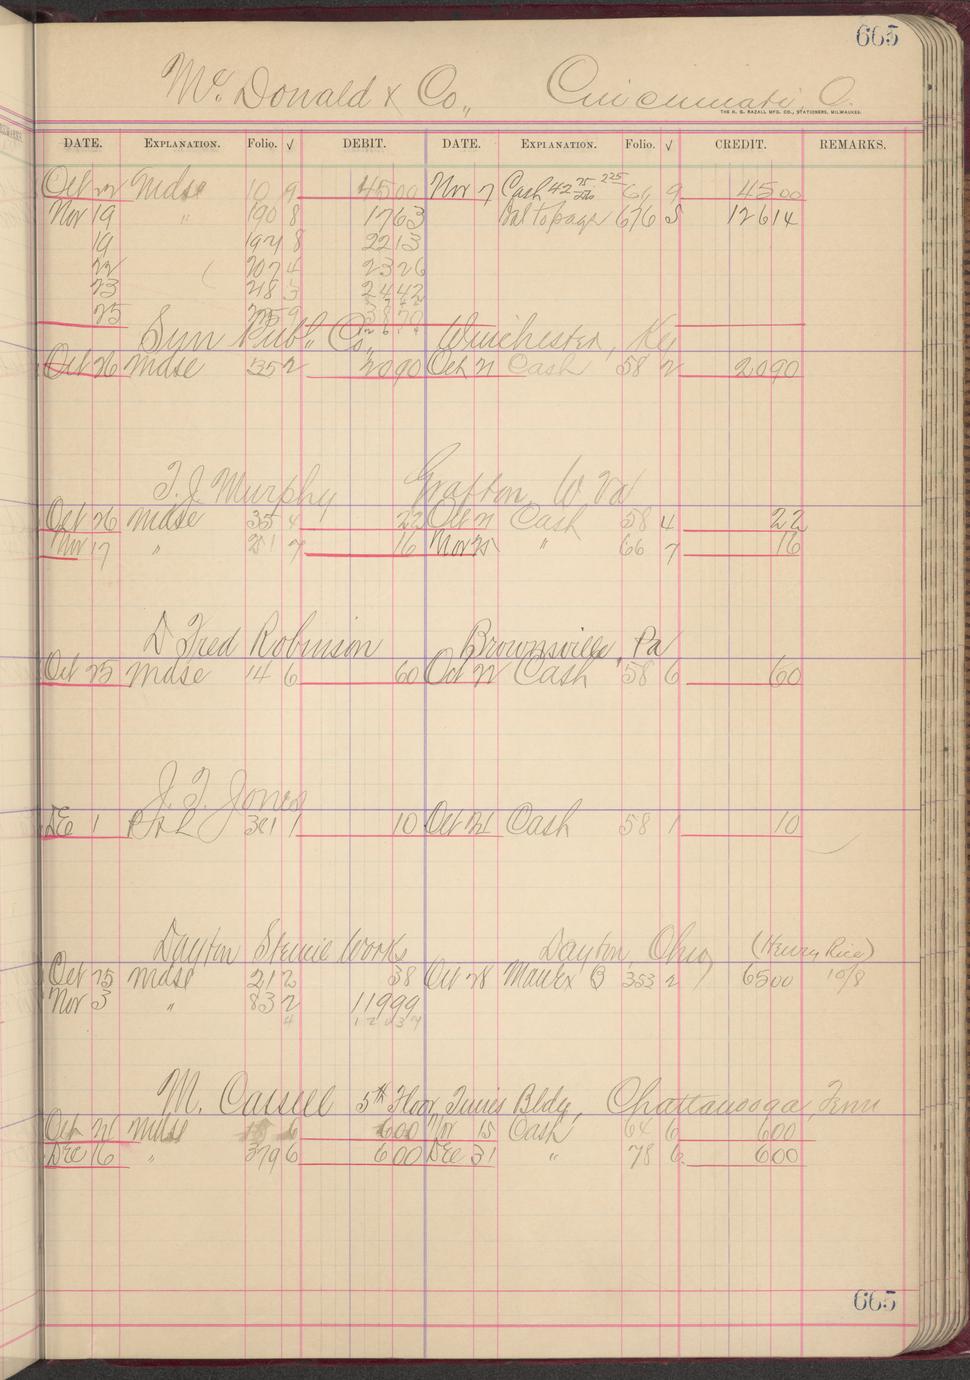 665
Mc. Donald & Co., Cincinnati, O.
THE H. G. RAZALL MFG. CO., STATIONERS, MILWAUKEE.
DATE. EXPLANATION. Folio. √ DEBIT. DATE. EXPLANATION. Folio. √ CREDIT. REMARKS.
Oct 22 Mdse 10 9 4500 Nov 7 Cash 42 75 dis 2 25 61 9 4500
Nov 19 " 190 8 1763 Bal to page 676 5 12614
19 194 8 2213
22 207 4 2326
23 218 3 2442
25 9 3870
Sun Pub. Co., Winchester, Ky
Oct 26 Mdse 35 2 2090 Oct 21 Cash 58 2 2090
T. J. Murphy Grafton, W. Va
Oct 26 Mdse 35 4 22 Oct 21 Cash 58 4 22
Nov 17 " 7 16 Nov 25 " 66 7 16
D Fred Robinson Brownsville, Pa
Oct 25 Mdse 14 6 60 Oct 22 Cash 58 6 60
J. T. Jones
Dec 1 P & L 381 1 10 Oct 31 Cash 58 1 10
Dayton Stencil Works Dayton, Ohio (Henry Rice)
Oct 25 Mdse 21 2 38 Oct 28 353 2 6500 10/8
Nov 3 " 83 2 11999
M. Cassell 5th Floor Times Bldg, Chattanooga, Tenn
Oct 26 Mdse 6 600 Nov 15 Cash 64 6 600
Dec 16 " 379 6 600 Dec 31 " 78 6 600
665